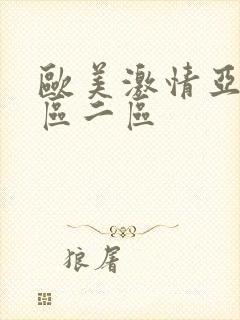 歐美激情亞
區二區
狼屠